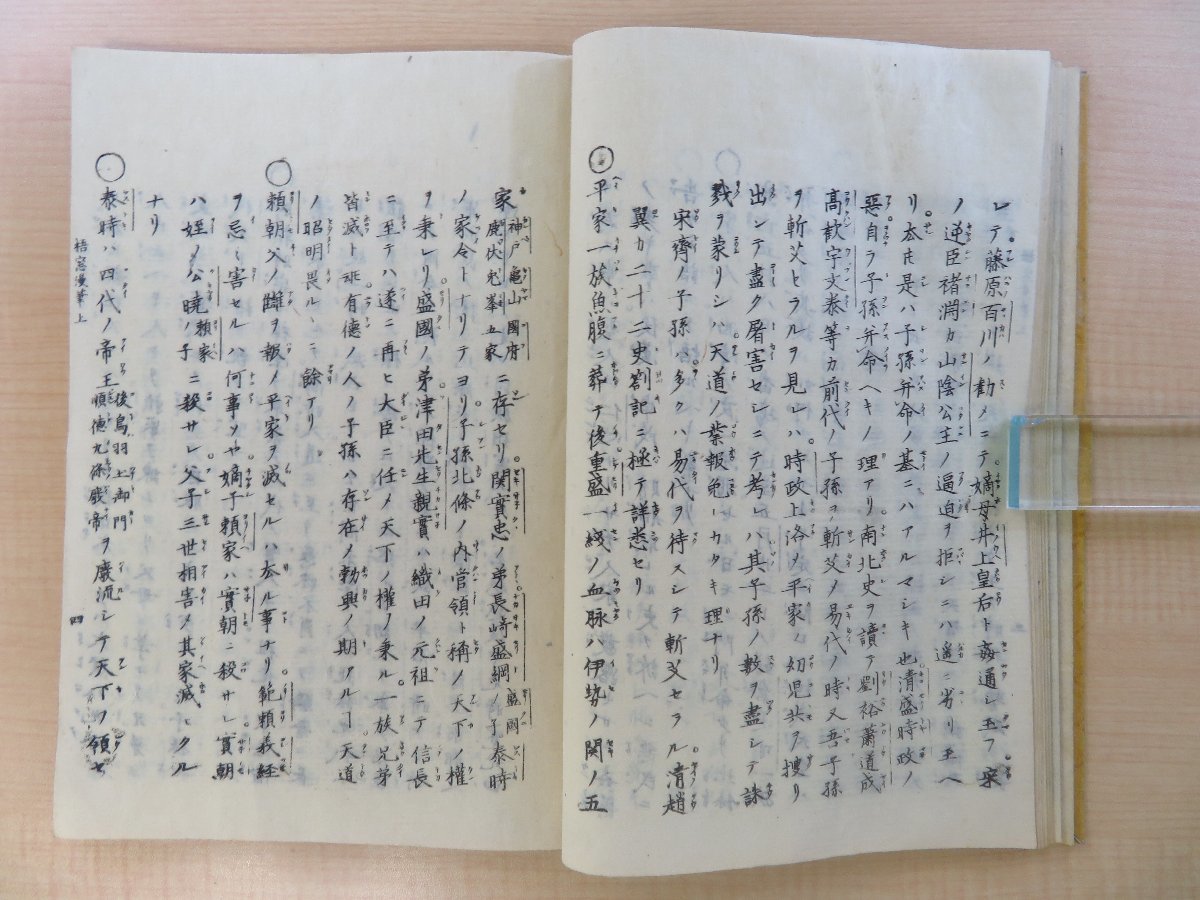 レテ藤原百川ノ勸メニテ嫡母井上皇后ト姦通シ玉フ宋
ノ逆臣褚淵カ山陰公主ノ逼迫ヲ拒シニハ遙ニ劣リ玉ヘ
リ𠫵𪜈是ハ子孫弁命ノ基ニハアルマシキ也清盛時政ノ
惡自ラ子孫弁命ヘキノ理アリ南北史ヲ讀テ劉裕蕭道成
高歡宇文泰等カ前代ノ子孫ヲ斬艾ノ易代ノ時又吾子孫
ヲ斬艾セラルヲ見レハ時政上洛ノ平家ノ幼児共ヲ搜リ
出シテ盡ク屠害セシニテ考レハ其子孫ノ數ヲ盡シテ誅
戮ヲ蒙リシハ天道ノ業報免ーカタキ理ナリ
宋齊ノ子孫ハ多クハ易代ヲ待スシテ斬艾セラル清趙
翼カ二十二史劄記ニ極テ詳悉セリ
○平家一族魚腹ニ葬テ後重盛一綫ノ血脉ハ伊勢ノ関ノ五
家 神戸亀山國府鹿伏兎峯五家 ニ存セリ関實忠ノ弟長崎盛綱ノ子 盛國 泰時
ノ家令トナリテヨリ子孫北條ノ内官領ト稱ノ天下ノ權
ヲ秉レリ盛國ノ弟津田先生親實ハ織田ノ元祖ニテ信長
ニ至テハ遂ニ再ヒ大臣ニ任メ天下ノ權ノ秉ル一族兄弟
皆滅ト𠫵有德ノ人ノ子孫ハ存在ノ勃興ノ期アルー天道
ノ昭明畏ルヽニ餘アリ
○頼朝父ノ讎ヲ報ノ平家ヲ滅セルハ𠫵ル事ナリ範頼義経
ヲ忌ミ害セルハ何事ソヤ嫡子頼家ハ實朝ニ殺サレ實朝
ハ姪ノ公曉 頼家ノ子 ニ殺サレ父子三世相害メ其家滅ヒタル
ナリ
○泰時ハ四代ノ帝王 後鳥羽土御門順德九條廢帝 ヲ廢流シテ天下ヲ領セ
梧窓漫筆上
四